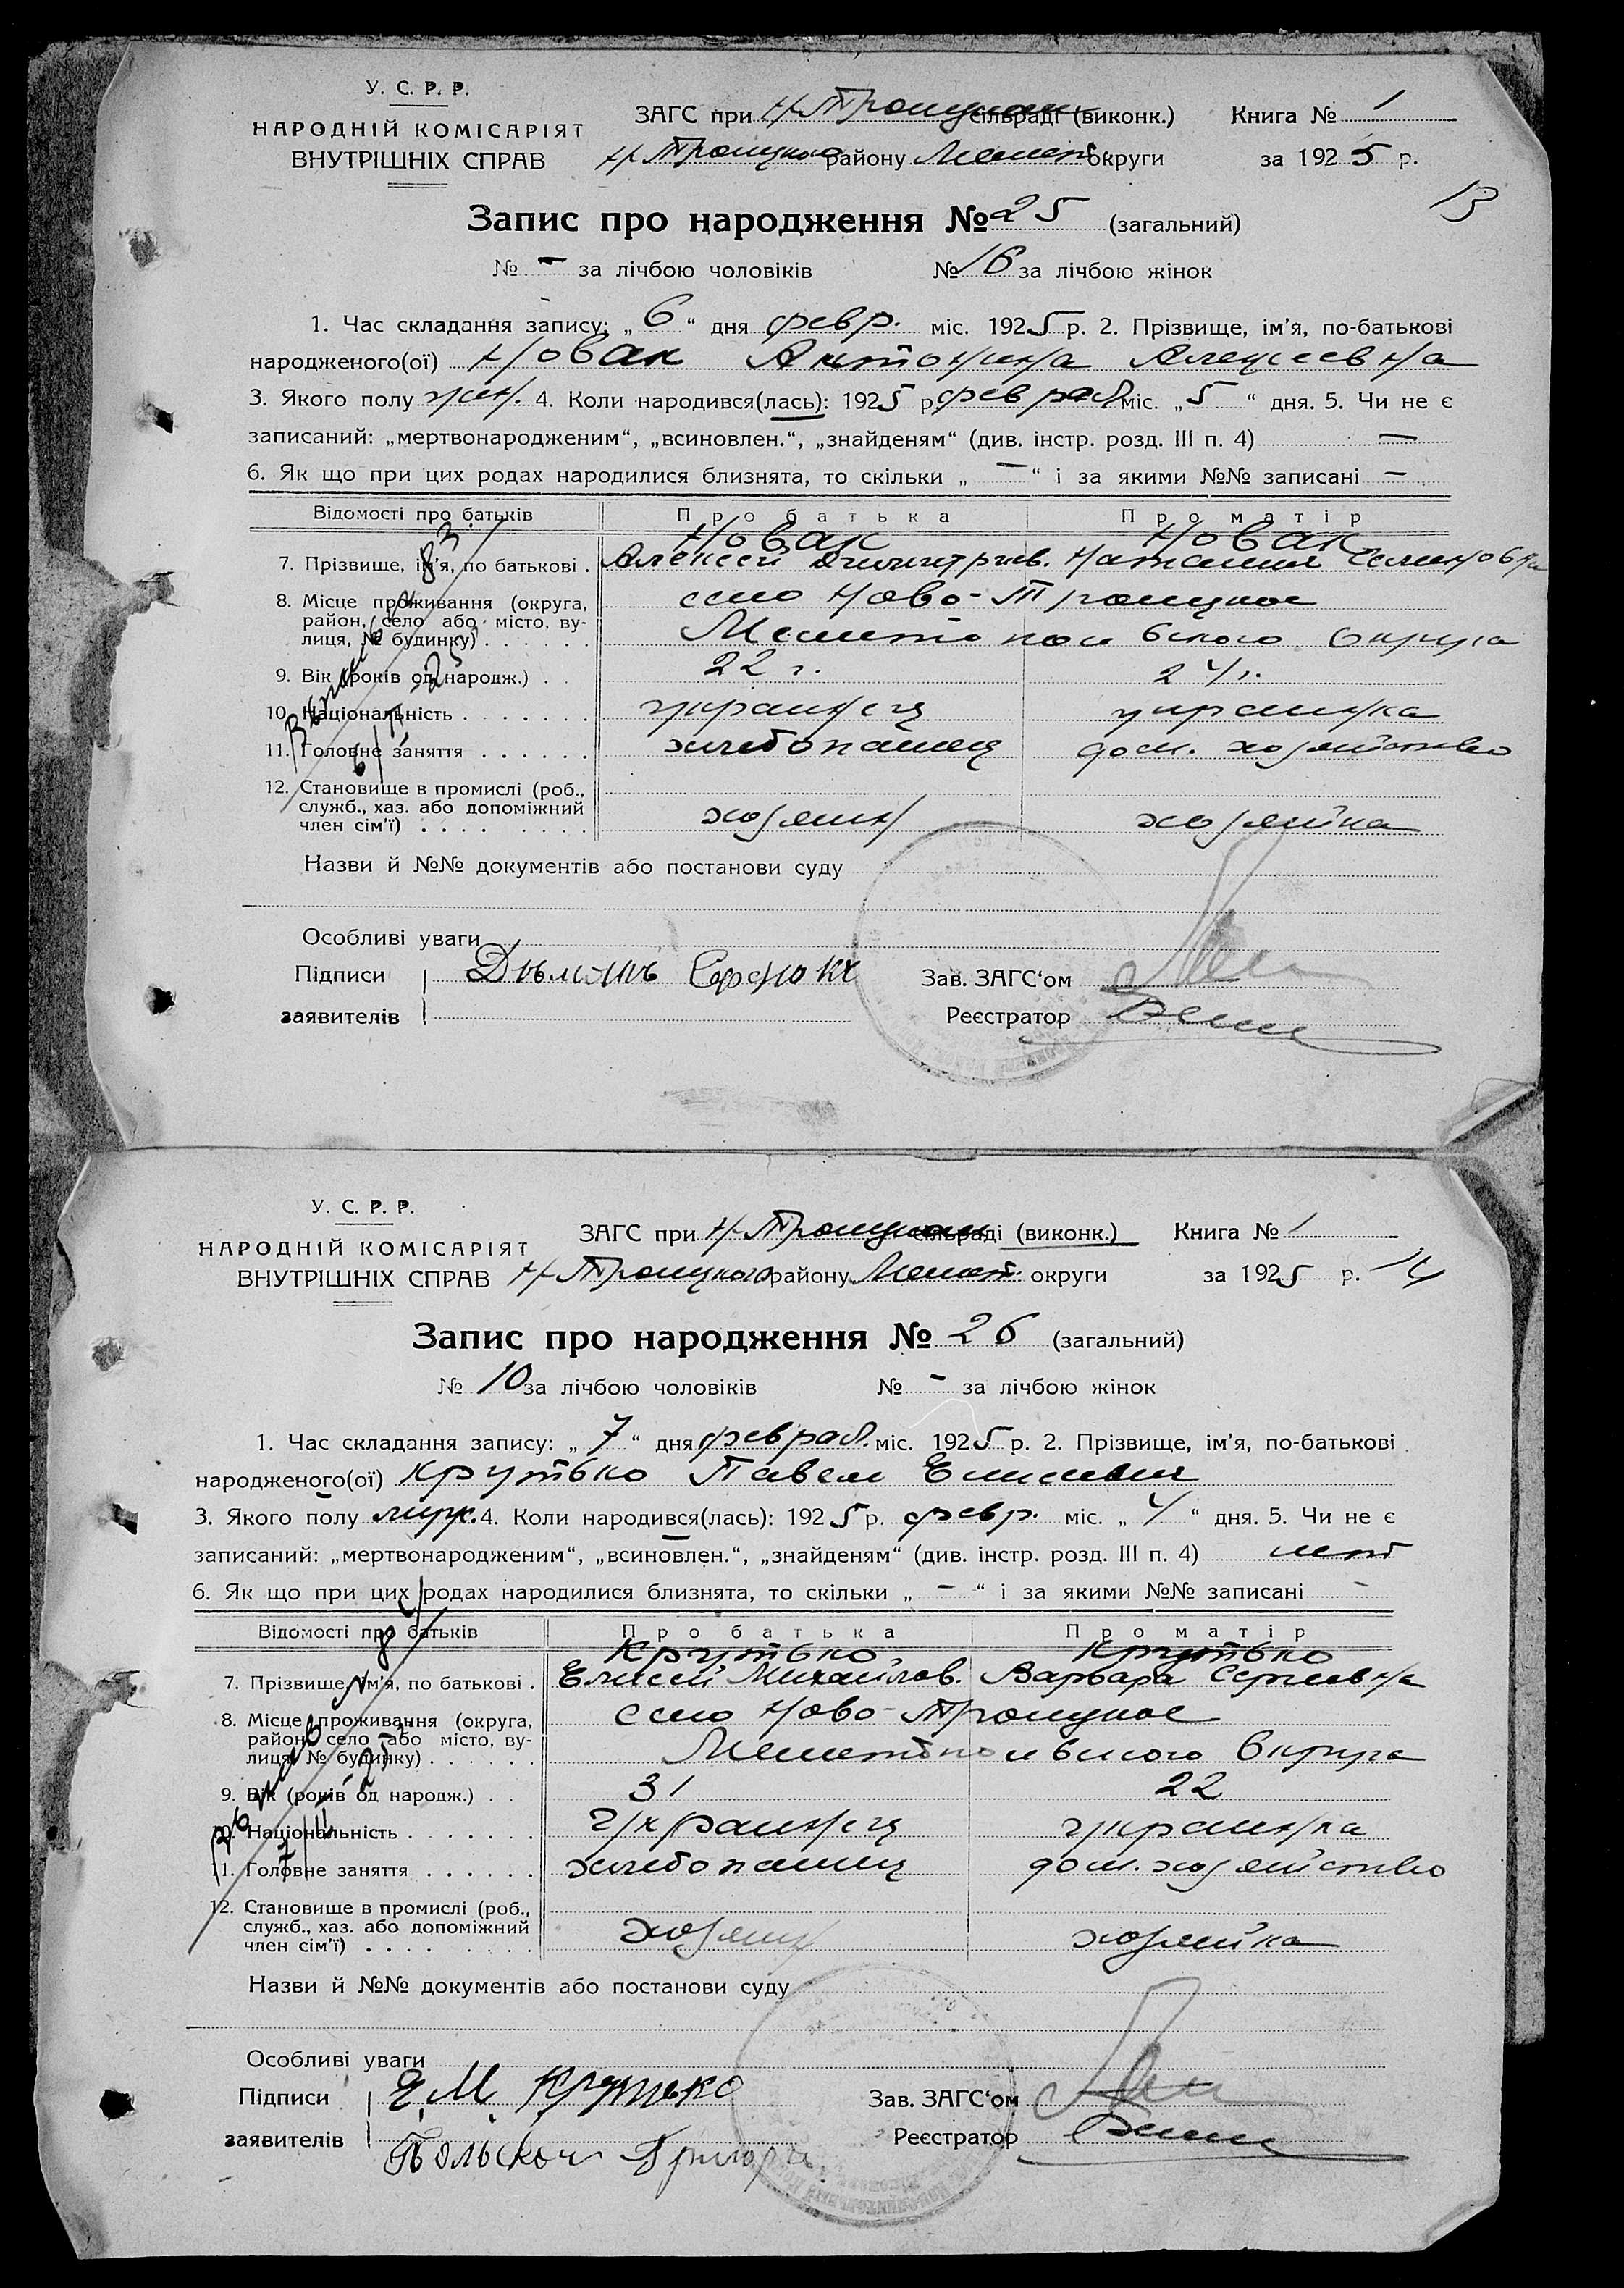 У. С. Р. Р.
НАРОДНІЙ КОМІСАРІЯТ
ВНУТРІШНІХ СПРАВ
ЗАГС при Н-Троицком сільраді (виконк.) Книга № 1
Н-Троицкого району Мелит. округи за 1925 р.
13
Запис про народження № 25 (загальний)
№ - за лічбою чоловіків № 16 за лічбою жінок
1. Час складання запису: „6“ дня февр. міс. 1925 р. 2. Прізвище, ім’я, по-батькові
народженого(ої) Новак Антонина Алексеевна
3. Якого полу жен. 4. Коли народився(лась): 1925 р. феврал. міс. „5“ дня. 5. Чи не є
записаний: „мертвонародженим“, „всиновлен.“, „знайденям“ (див. інстр. розд. III п. 4) —
6. Як що при цих родах народилися близнята, то скільки „—“ і за якими №№ записані —
Відомості про батьків Про батька Про матір
Новак Новак
7. Прізвище, ім’я, по батькові . Алексей Димитриев. Наталия Семеновна
8. Місце проживання (округа, село Ново-Троицкое
район, село або місто, ву-
лиця, № будинку) . . . . . . Мелитопольского Округа
9. Вік (років од народж.) . . 22 г. 24 г.
10. Національність . . . . . . . украинец украинка
11. Головне заняття . . . . . . хлебопашец дом. хозяйство
12. Становище в промислі (роб.,
служб., хаз. або допоміжний
член сім’ї) . . . . . . . . хозяин хозяйка
Назви й №№ документів або постанови суду
Особливі уваги
Підписи Зав. ЗАГС‘ом
заявителів Реєстратор
У. С. Р. Р.
НАРОДНІЙ КОМІСАРІЯТ
ВНУТРІШНІХ СПРАВ
ЗАГС при Н-Троицком сільраді (виконк.) Книга № 1
Н-Троицкого району Мелит. округи за 1925 р. 14
Запис про народження № 26 (загальний)
№ 10 за лічбою чоловіків № - за лічбою жінок
1. Час складання запису: „7“ дня феврал. міс. 1925 р. 2. Прізвище, ім’я, по-батькові
народженого(ої) Крутько Павел Елисеевич
3. Якого полу муж. 4. Коли народився(лась): 1925 р. февр. міс. „4“ дня. 5. Чи не є
записаний: „мертвонародженим“, „всиновлен.“, „знайденям“ (див. інстр. розд. III п. 4) нет
6. Як що при цих родах народилися близнята, то скільки „—“ і за якими №№ записані -
Відомості про батьків Про батька Про матір
Крутько Крутько
7. Прізвище, ім’я, по батькові . Елисей Михайлов. Варвара Сергеевна
8. Місце проживання (округа, село Ново-Троицкое
район, село або місто, ву-
лиця, № будинку) . . . . . . Мелитопольского Округа
9. Вік (років од народж.) . . 31 22
10. Національність . . . . . . . украинец украинка
11. Головне заняття . . . . . . хлебопашец дом. хозяйство
12. Становище в промислі (роб.,
служб., хаз. або допоміжний
член сім’ї) . . . . . . . . хозяин хозяйка
Назви й №№ документів або постанови суду
Особливі уваги
Підписи Е. М. Крутько Зав. ЗАГС‘ом
заявителів Реєстратор